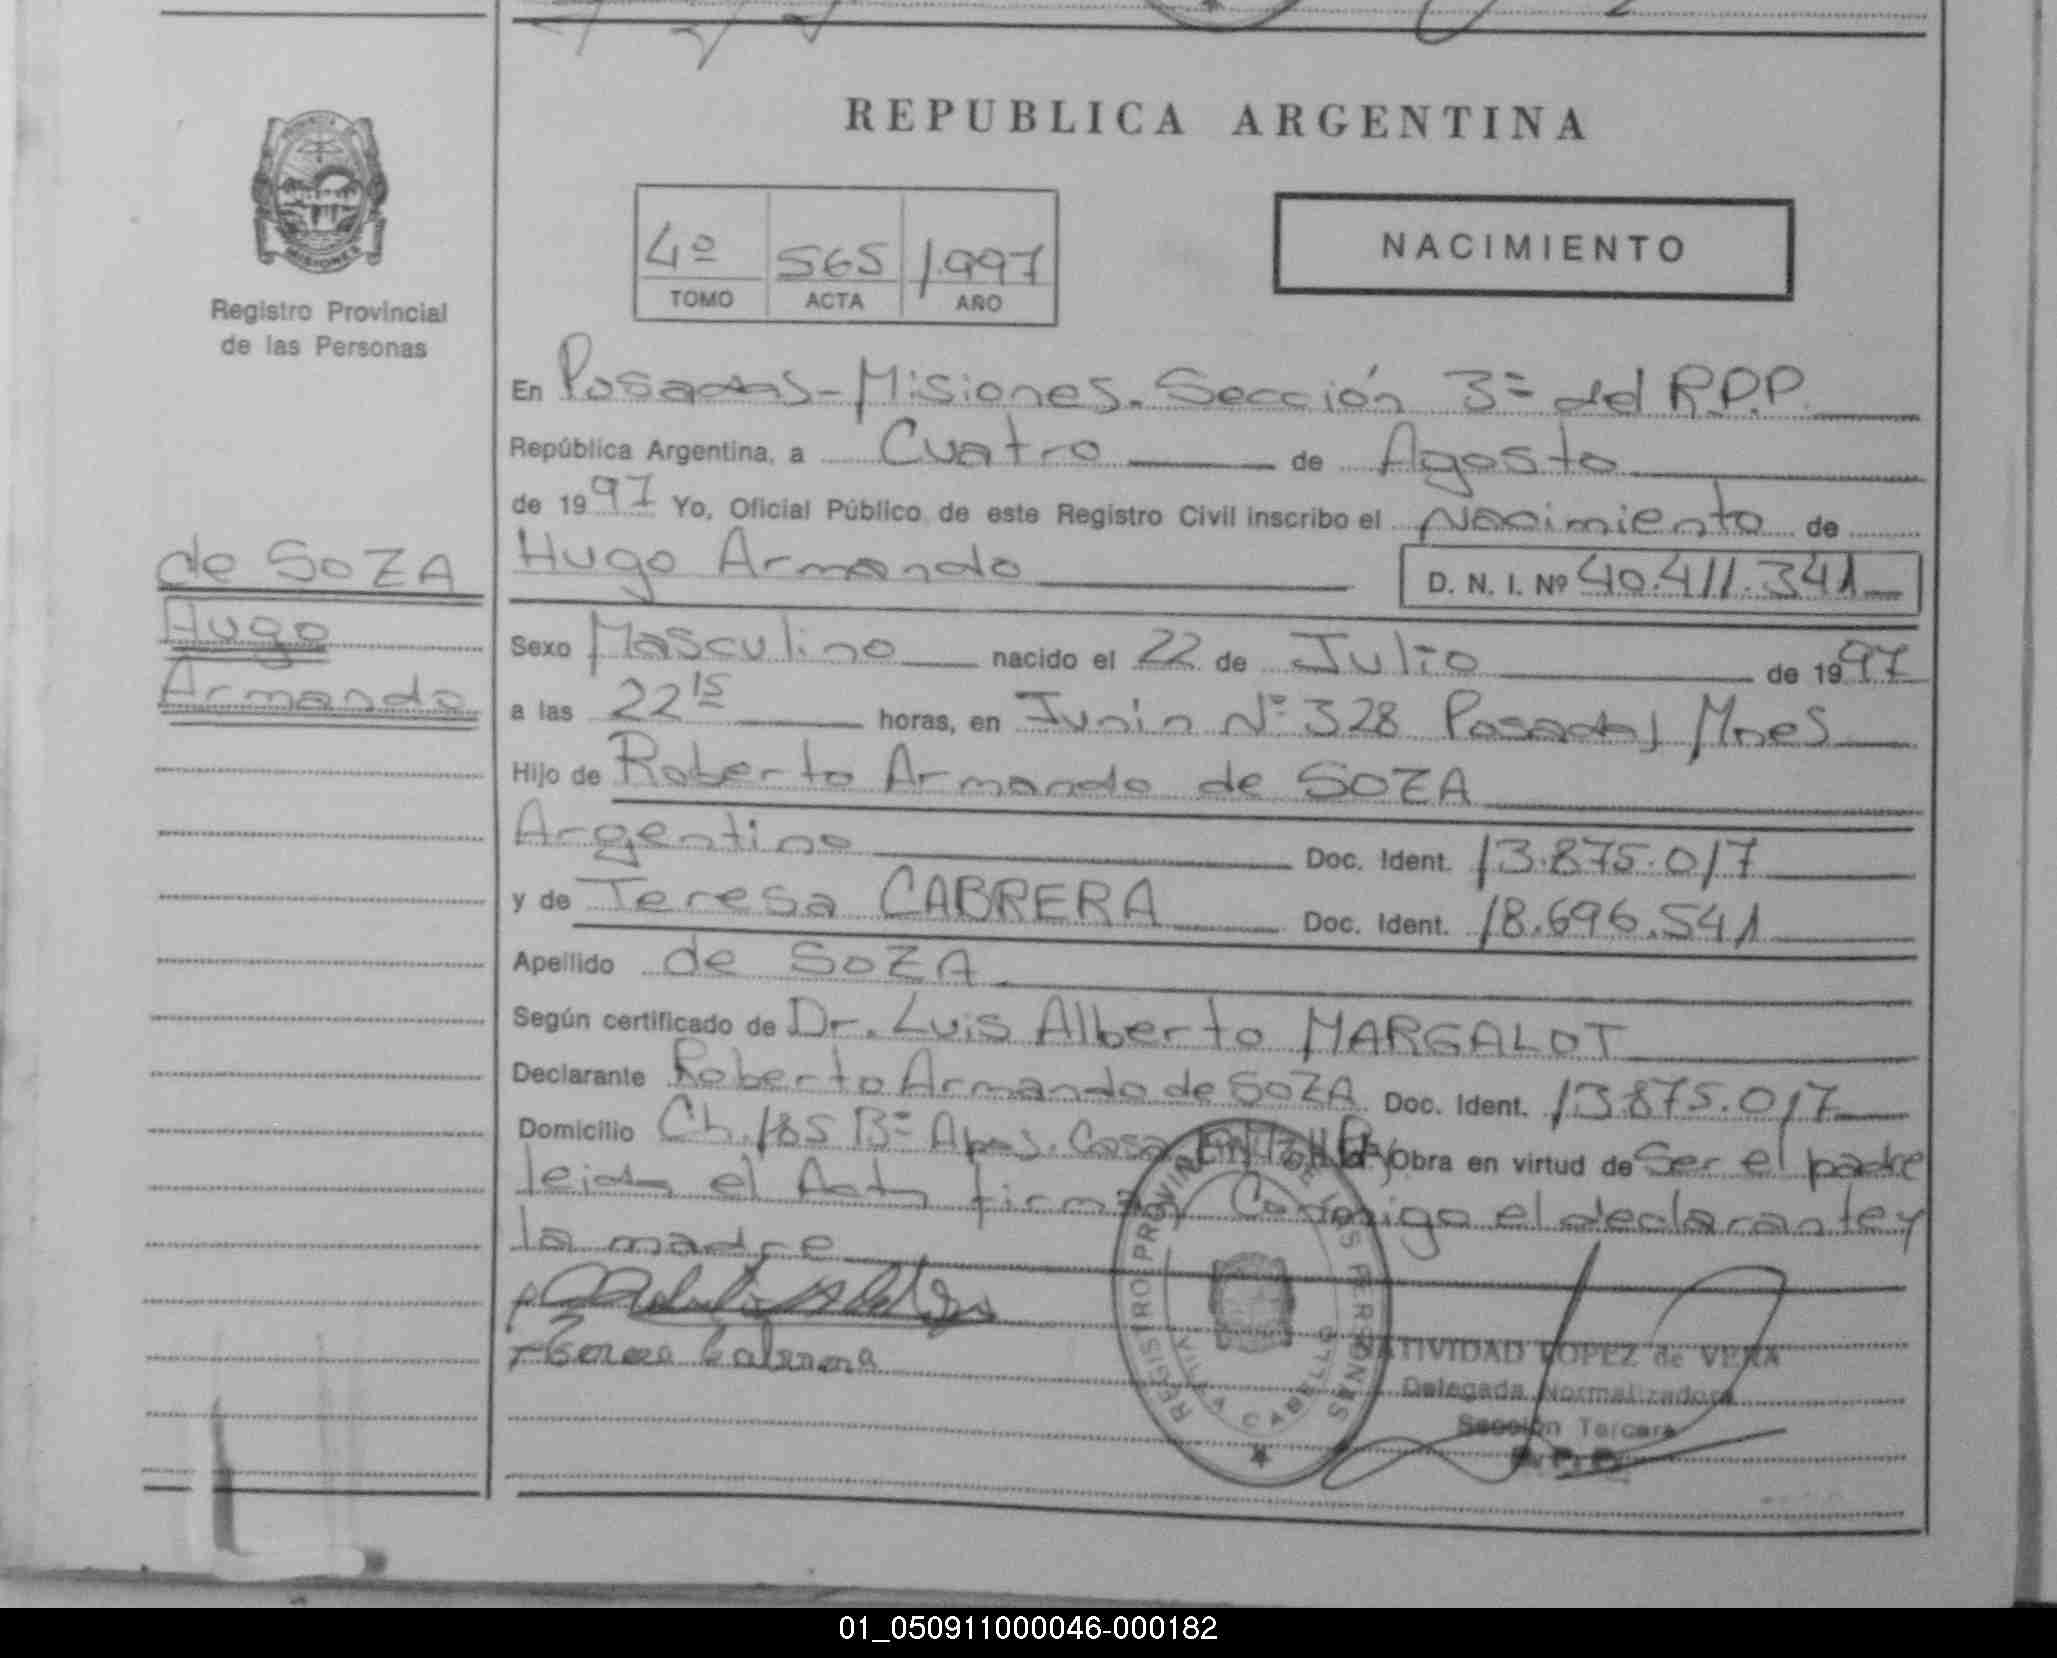 REPUBLICA ARGENTINA
MISIONES
Registro Provincial
de las Personas
4º 565 1.997
TOMO ACTA AÑO
NACIMIENTO
En Posadas-Misiones. Sección 3ª del R.P.P.
República Argentina, a Cuatro de Agosto
de 1997 Yo, Oficial Público de este Registro Civil inscribo el Nacimiento de
de SOZA
Hugo
Armando
Hugo Armando D. N. I. Nº 40.411.341
Sexo Masculino nacido el 22 de Julio de 1997
a las 22 15 horas, en Junin Nº 328 Posadas Mnes
Hijo de Roberto Armando de SOZA
Argentino Doc. Ident. 13.875.017
y de Teresa CABRERA Doc. Ident. 18.696.541
Apellido de SOZA
Según certificado de Dr. Luis Alberto MARGALOT
Declarante Roberto Armando de SOZA Doc. Ident. 13.875.017
Domicilio Ch. 185 Bº Casa Obra en virtud de Ser el padre
leida el Acta firman Conmigo el declarante y
la madre
Teresa Cabrera
REGISTRO PROVINCIAL DE LAS PERSONAS
CABELLO
NATIVIDAD LOPEZ de VERA
Delegada Normalizadora
Sección Tercera
R.P.P.
01_050911000046-000182